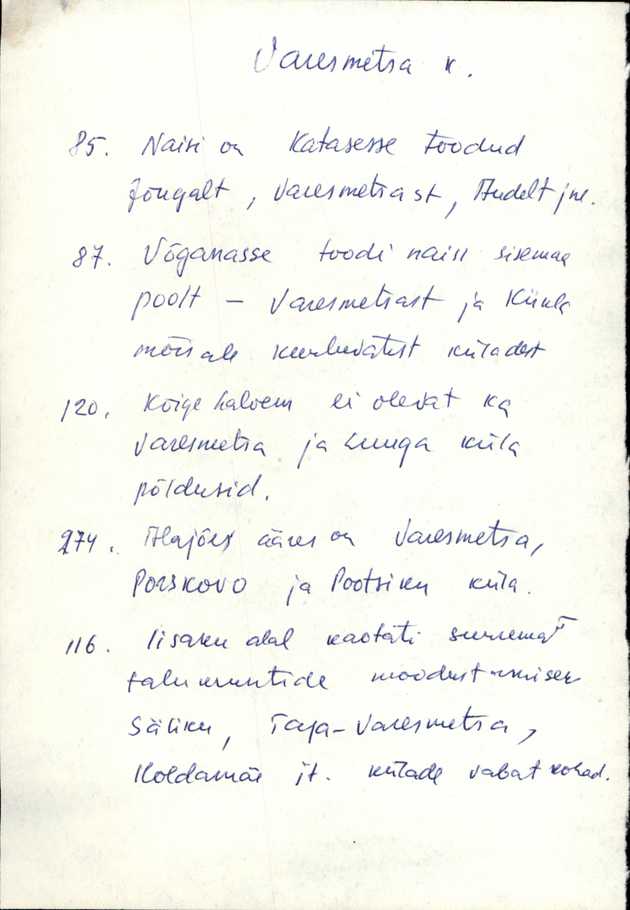 Varesmetsa k.
85. Naisi on Katasesse toodud
Jõugalt, Varesmetsast, Audelt jne.
87. Võganasse toodi naisi sisemaa
poolt – Varesmetsast ja
mõisale küladest
120. Kõige halvem ei olevat ka
Varesmetsa ja Luuga küla
põldusid.
274. Alajõe ääres on Varesmetsa,
Porskovo ja Pootsiku küla.
116. Iisaku alal kaotati suuremat
talukruntide moodustamisek
Säliku, Taga-Varesmetsa,
Koldamäe jt. külade vabatkohad.